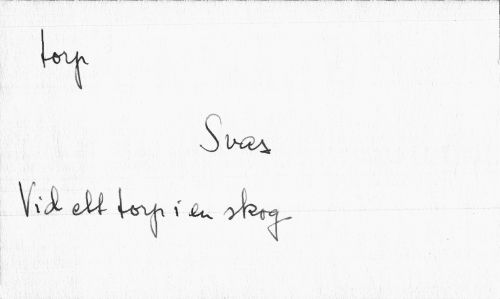 torp
Svas
Vid ett torp i en skog